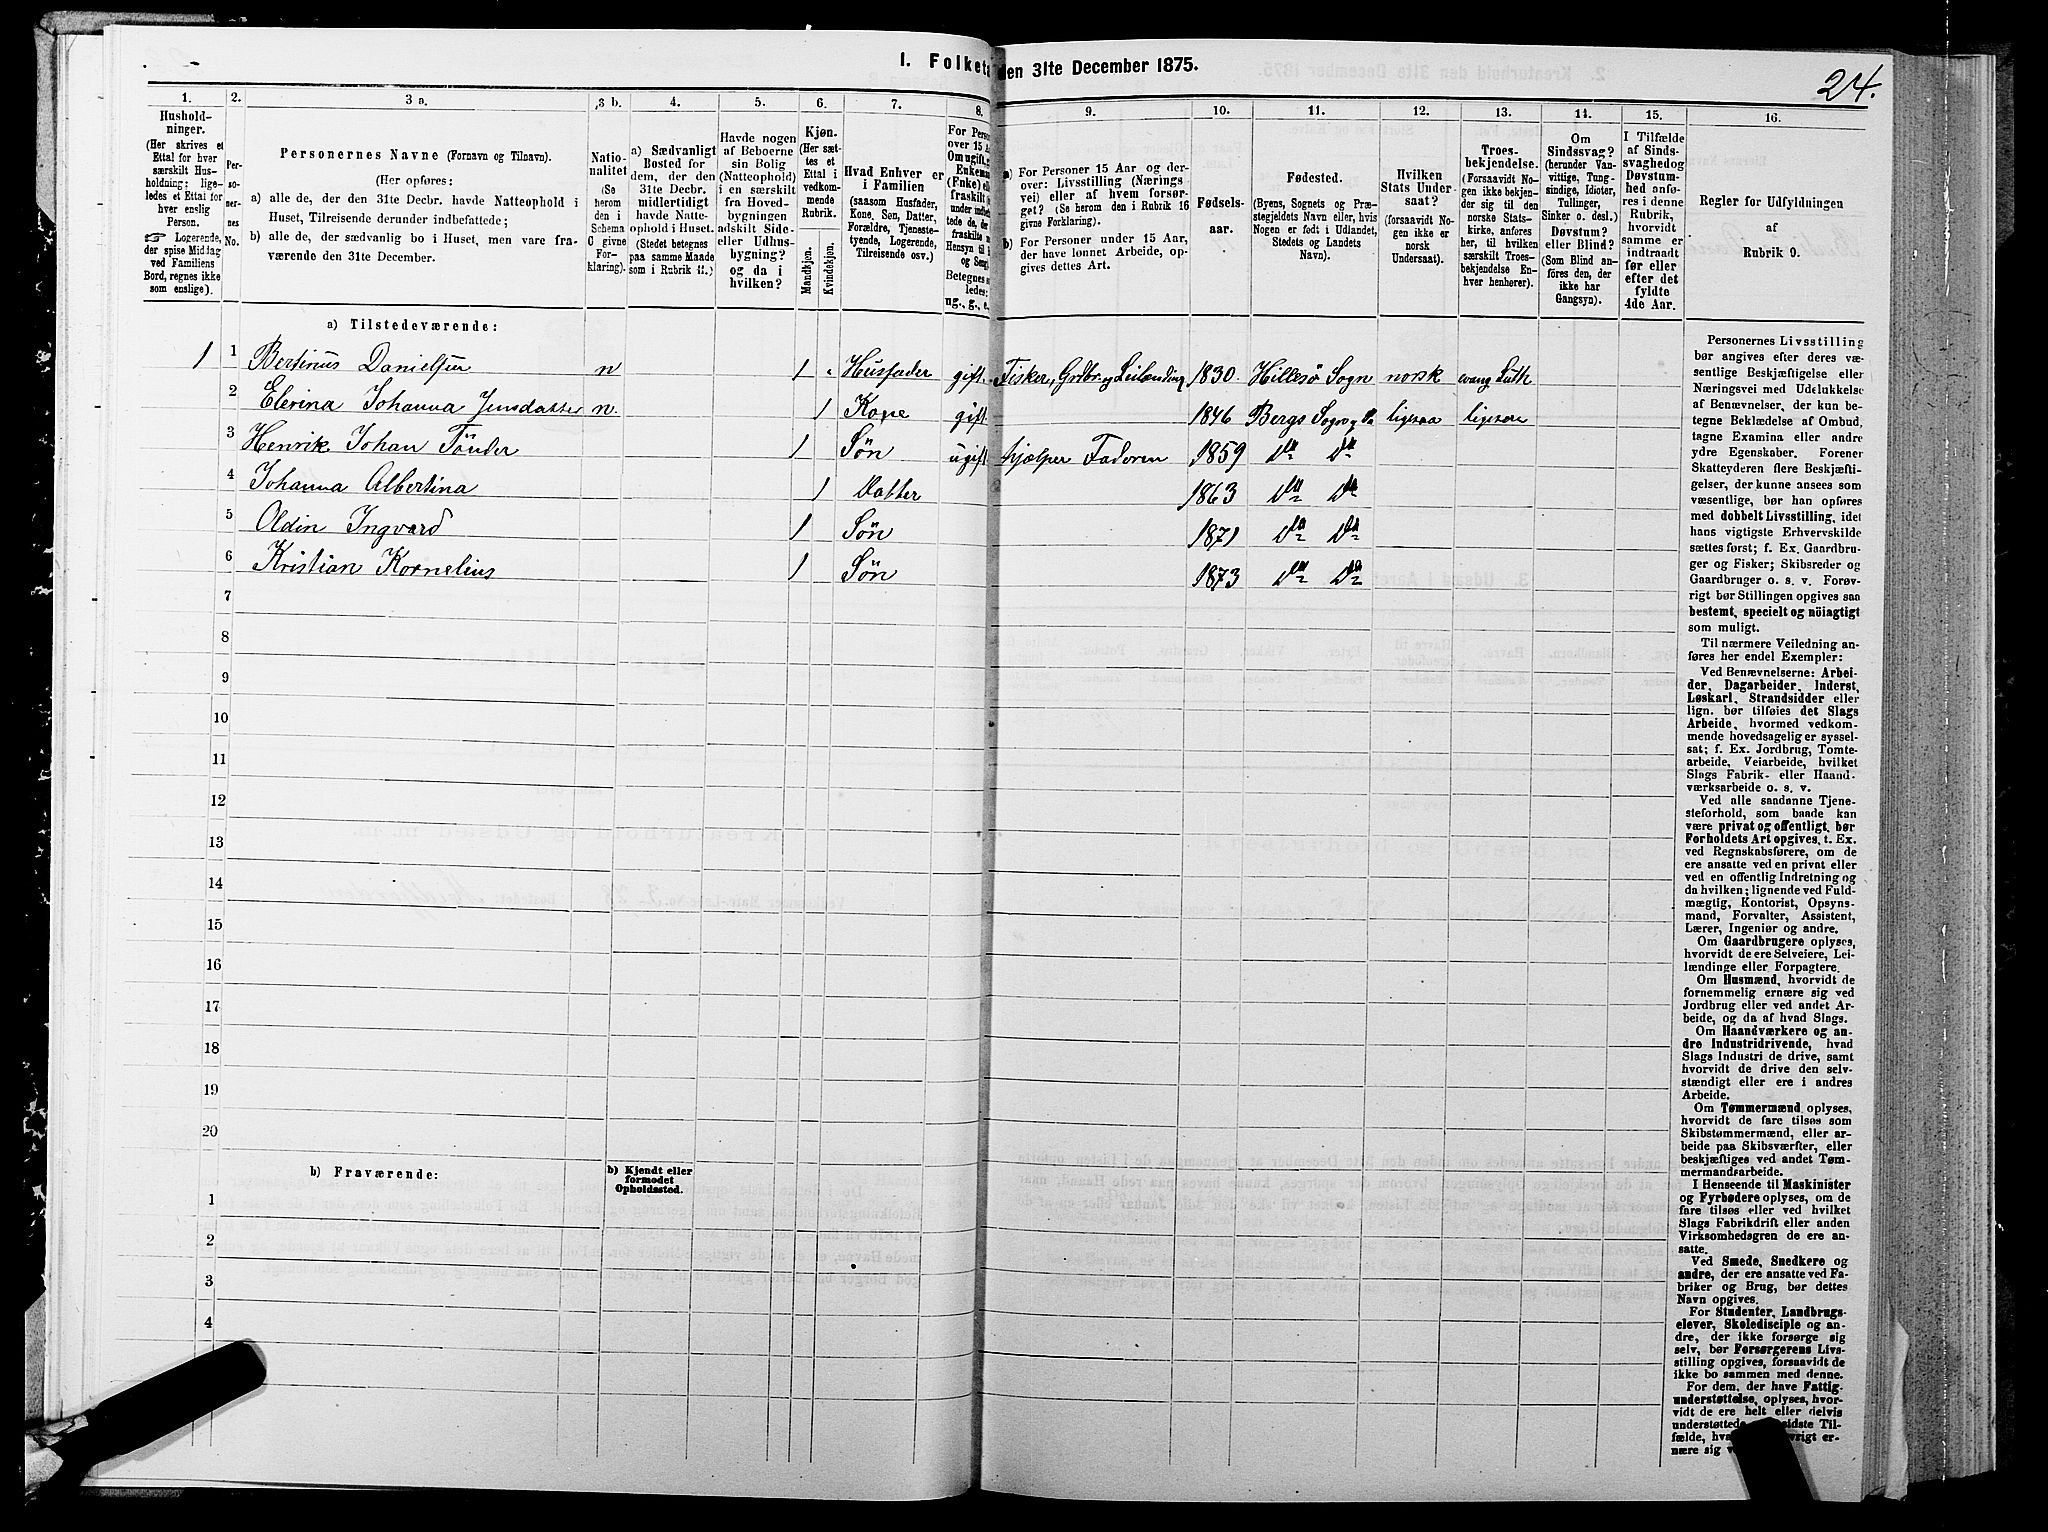 24.
1. Folketæ den 31te December 1875.
1. 2. 3 a. 3 b. 4. 5. 6. 7. 8. 9. 10. 11. 12. 13. 14. 15. 16.
Hushold-
ninger.
(Her skrives et
Ettal for hver
særskilt Hus-
holdning; lige-
ledes et Ettal for
hver enslig
Person.
☞ Logerende,
der spise Middag
ved Familiens
Bord, regnes ikke
som enslige).
Per-
so-
ner-
nes
No.
Personernes Navne (Fornavn og Tilnavn).
(Her opføres:
a) alle de, der den 31te Decbr. havde Natteophold i
Huset, Tilreisende derunder indbefattede;
b) alle de, der sædvanlig bo i Huset, men vare fra-
værende den 31te December.
Natio-
nalitet
(Se
herom
den i
Schema
C givne
For-
klaring).
a) Sædvanligt
Bosted for
dem, der den
31te Decbr.
midlertidigt
havde Natte-
ophold i Huset.
(Stedet betegnes
paa samme Maade
som i Rubrik 11.)
Havde nogen
af Beboerne
sin Bolig
(Natteophold)
i en særskilt
fra Hoved-
bygningen
adskilt Side-
eller Udhus-
bygning?
og da i
hvilken?
Kjøn.
(Her sæt-
tes et
Ettal i
vedkom-
mende
Rubrik.
Mandkjøn.
Kvindekjøn.
Hvad Enhver er
i Familien
(saasom Husfader,
Kone, Søn, Datter,
Forældre, Tjeneste-
tyende, Logerende,
Tilreisende osv.)
For Perso
over 15 A
Om ugift, g
Enkema
(Enke) elle
fraskilt
under indbe
tede de, de
fraskilte
Hensyn til
og Seng.
Betegnes s
ledes:
ug., g., e.,
a) For Personer 15 Aar og der-
over: Livsstilling (Nærings
vei) eller af hvem forsør-
get? (Se herom den i Rubrik 16
givne Forklaring).
b) For Personer under 15 Aar,
der have lønnet Arbeide, op-
gives dettes Art.
Fødsels-
aar.
Fødested.
(Byens, Sognets og Præ-
stegjeldets Navn eller, hvis
Nogen er født i Udlandet,
Stedets og Landets
Navn).
Hvilken
Stats Under-
saat?
(forsaavidt No-
gen ikke er
norsk
Undersaat).
Troes-
bekjendelse.
(Forsaavidt No-
gen ikke bekjen-
der sig til den
norske Stats-
kirke, anføres
her, til hvilken
særskilt Troes-
bekjendelse En-
hver henhører).
Om
Sindssvag?
(herunder Van-
vittige, Tung-
sindige, Idioter,
Tullinger,
Sinker o. desl.)
Døvstum?
eller Blind?
(Som Blind an-
føres den, der
ikke har
Gangsyn).
I Tilfælde
af Sinds-
svaghedog
Døvstum-
hed anfø-
res i denne
Rubrik,
hvorvidt
samme er
indtraadt
før eller
efter det
fyldte
4de Aar.
Regler for Udfyldningen
af
Rubrik 9.
a) Tilstedeværende:
1 1 Bertinus Danielsen n 1 Husfader gift. Fisker, Grdbr. og Leilænding 1830. Hillesö Sogn norsk evang Luth
2 Elerina Johanna Jensdatter n. 1 Kone gift 1846 Bergs Sogn ligesaa ligesaa
3 Henrik Johan Tönder 1 Søn ugift hjælper Faderen 1859 Do Do
4 Johanna Albertina 1 Datter 1863 Do Do
5 Oldin Ingvard 1 Søn 1871 Do Do
6 Kristian Kornelius 1 Søn 1873 Do Do
7
8
9
10
11
12
13
14
15
16
17
18
19
20
b) Fraværende:
b) Kjendt eller
formodet
Opholdssted.
1
2
3
4
Personernes Livsstilling
bør angives efter deres væ-
sentlige Beskjæftigelse eller
Næringsvei med Udelukkelse
af Benævnelser, der kun be-
tegne Beklædelse af Ombud,
tagne Examina eller andre
ydre Egenskaber. Forener
Skatteyderen flere Beskjæfti-
gelser, der kunne ansees som
væsentlige, bør han opføres
med dobbelt Livsstilling, idet
hans vigtigste Erhvervskilde
sættes først; f. Ex. Gaardbru-
ger og Fisker; Skibsreder og
Gaardbruger o. s. v. Forøv-
rigt bør Stillingen opgives saa
bestemt, specielt og nöiagtigt
som muligt.
Til nærmere Veiledning an-
føres her endel Exempler:
Ved Benævnelserne: Arbei-
der, Dagarbeider, Inderst,
Løskarl, Strandsidder eller
lign. bør tilføies det Slags
Arbeide, hvormed vedkom-
mende hovedsagelig er syssel-
sat; f. Ex. Jordbrug, Tomte-
arbeide, Veiarbeide, hvilket
Slags Fabrik- eller Haand-
værksarbeide o. s. v.
Ved alle saadanne Tjene-
steforhold, som baade kan
være privat og offentligt, bør
Forholdets Art opgives, t. Ex.
ved Regnskabsførere, om de
ere ansatte ved en privat eller
ved en offentlig Indretning og
da hvilken; lignende ved Fuld-
mægtig, Kontorist, Opsyns-
mand, Forvalter, Assistent,
Lærer, Ingeniør og andre.
Om Gaardbrugere oplyses,
hvorvidt de ere Selveiere, Lei-
lændinge eller Forpagtere.
Om Husmænd, hvorvidt de
fornemmelig ernære sig ved
Jordbrug eller ved andet Ar-
beide, og da af hvad Slags.
Om Haandværkere og an-
dre Industridrivende, hvad
Slags Industri de drive, samt
hvorvidt de drive den selv-
stændigt eller ere i andres
Arbeide.
Om Tømmermænd oplyses,
hvorvidt de fare tilsøs som
Skibstømmermænd, eller ar-
beide paa Skibsværfter, eller
beskjæftiges ved andet Tøm-
mermandsarbeide.
I Henseende til Maskinister
og Fyrbødere oplyses, om de
fare tilsøs eller ved hvilket
Slags Fabrikdrift eller anden
Virksomhedsgren de ere an-
satte.
Ved Smede, Snedkere og
andre, der ere ansatte ved Fa-
briker og Brug, bør dettes
Navn opgives.
For Studenter, Landbrugs-
elever, Skoledisciple og an-
dre, der ikke forsørge sig
selv, bør Forsørgerens Livs-
stilling opgives, forsaavidt de
ikke bo sammen med denne.
For dem, der have Fattig-
understøttelse, oplyses, hvor-
vidt de ere helt eller delvis
understøttede sidste Til-
fælde, hva vrigt er-
nære sig v